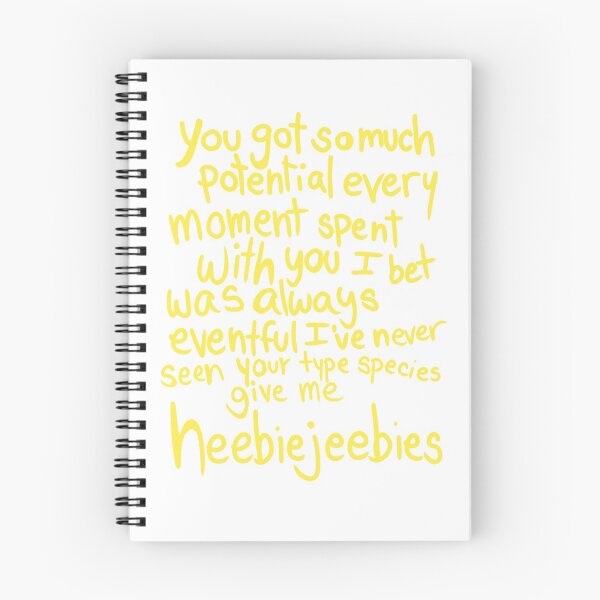 you got so much
potential every
moment spent
with you I bet
was always
eventful I've never
seen your type species
give me
heebiejeebies